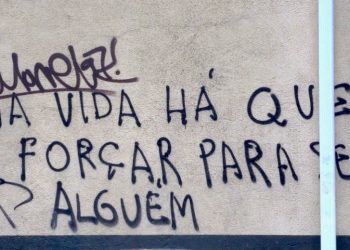 NA VIDA HÁ QUE
FORÇAR PARA SE
ALGUÉM